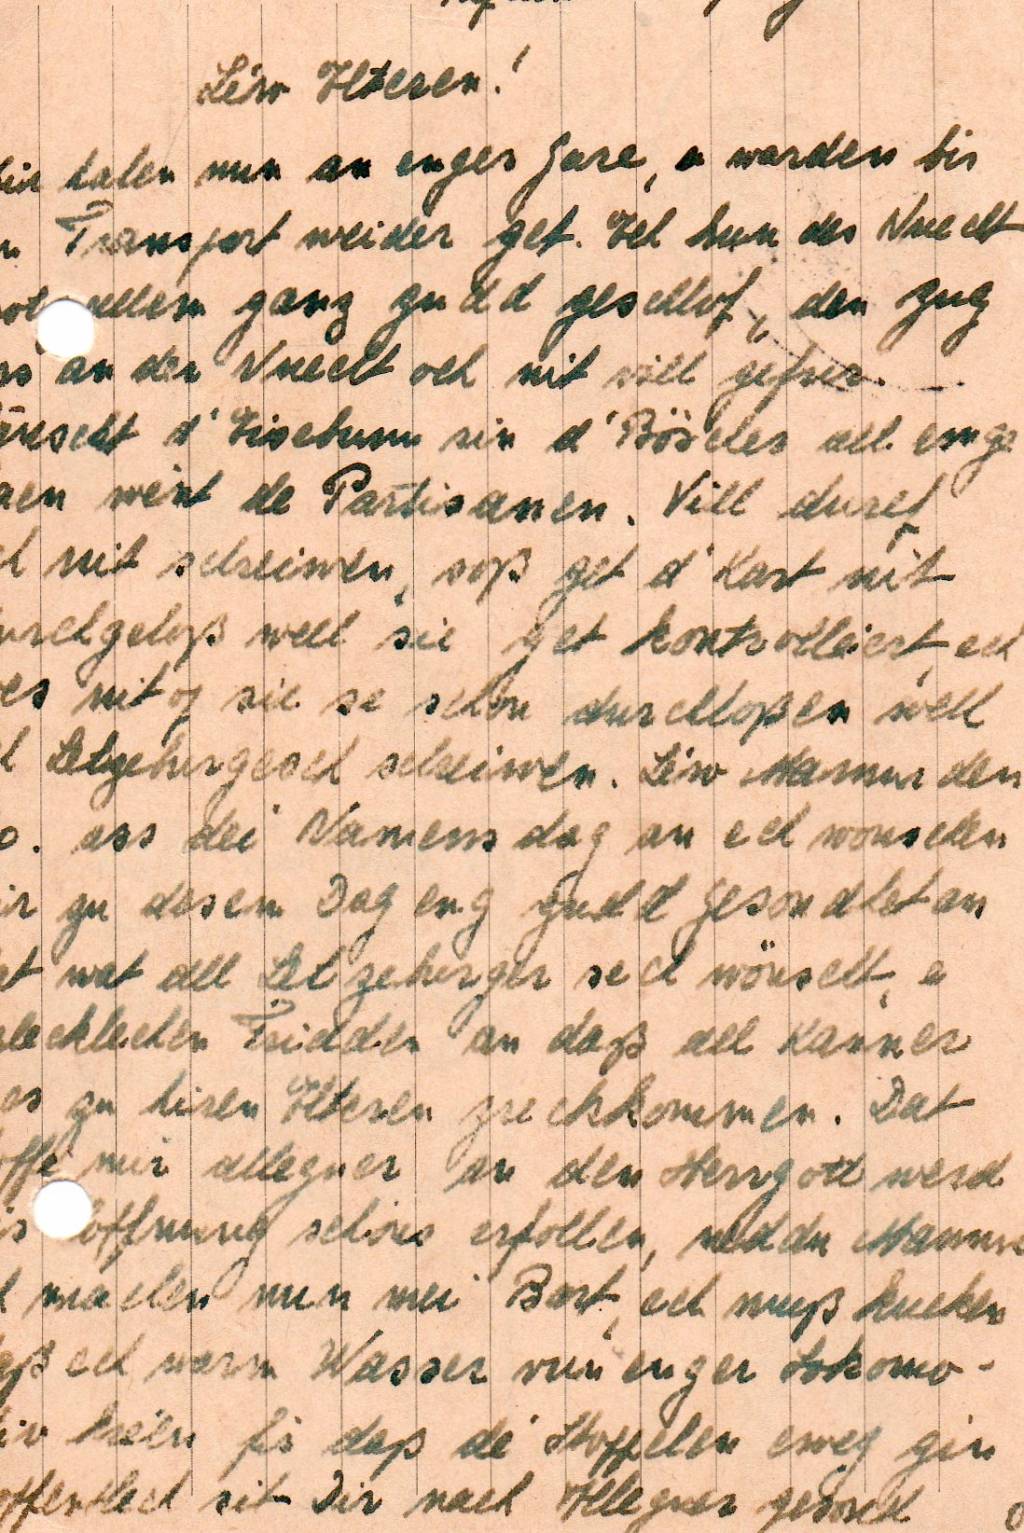 Léiw Elteren!
halen nun an enger Gare, a warden bis
Transport weider get. Ech hun des Nuecht
allem ganz gudd geschlof, den Zug
an der Nuecht och nit vill gefuer.
d'Eisebunn sin d'Böscher all emge
wént de Partisanen. Vill duref
nit schreiwen, soß get d'Kart nit
well sie get kontrolléiert, ech
nit of sie se schon durchloßen well
Letzebergesch schreiwen. Léiw Mamm den
ass dei Namensdag an ech wonschen
zu desem Dag eng gudd Gesondhet an
wat all Letzeberger sech wönscht, e
Fridden an daß all Kanner
zu hiren Elteren zreckkommen. Dat
mir alleguer an den Herrgott werd
Hoffnung schons erfollen, Mamm
machen nun mei Bart, ech muß kucken
ech warm Wasser vun enger Lokomo-
kréien fir daß de Stoppelen eweg gin
sit Dir nach Alleguer gesond